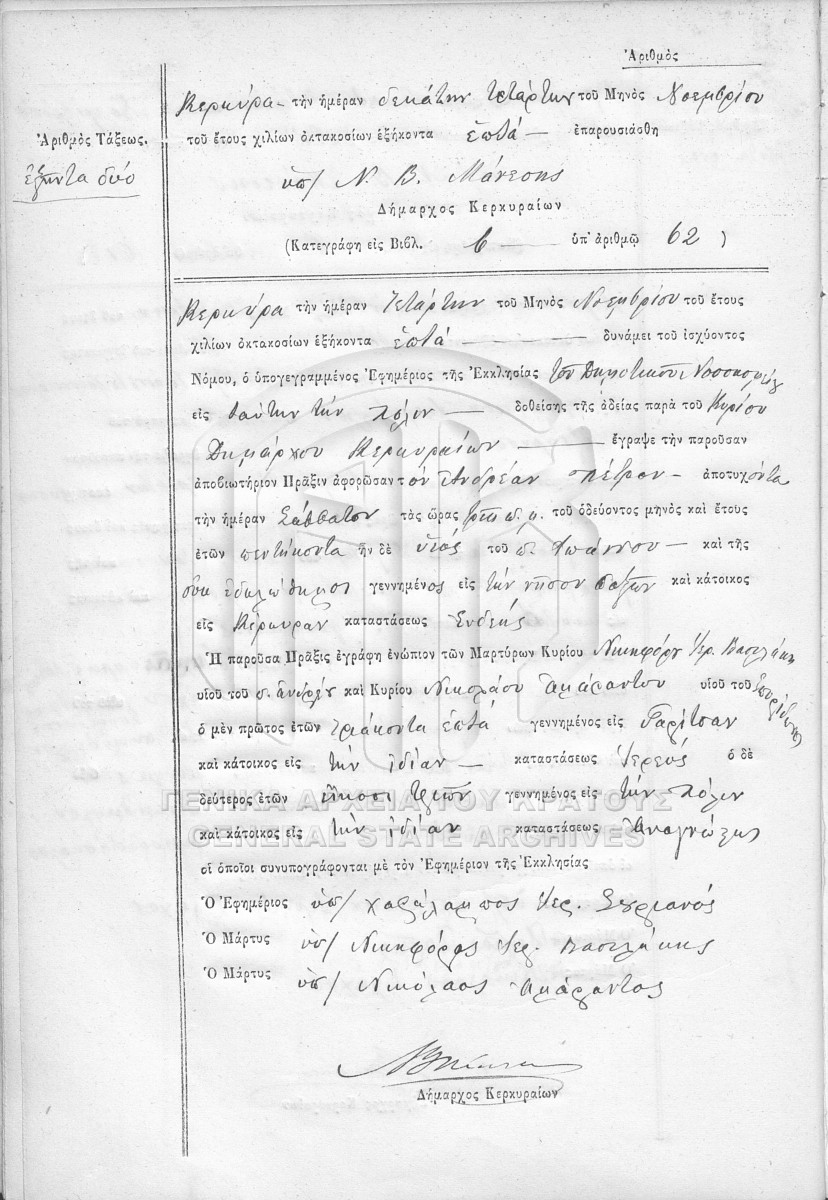 Ἀριθμὸς
Κερκύρα τὴν ἡμέραν δεκάτην τετάρτην τοῦ Μηνὸς Νοεμβρίου
Ἀριθμὸς Τάξεως.
τοῦ ἔτους χιλίων ὀκτακοσίων ἑξήκοντα ἑπτά — ἐπαρουσιάσθη
ἑξῆντα δύο
ὑπ/ Ν. Β. Μάνεσης
Δήμαρχος Κερκυραίων
(Κατεγράφη εἰς Βιβλ. 6 — ὑπ' ἀριθμῷ 62 )
Κερκύρα τὴν ἡμέραν τετάρτην τοῦ Μηνὸς Νοεμβρίου τοῦ ἔτους
χιλίων ὀκτακοσίων ἑξήκοντα ἑπτά — δυνάμει τοῦ ἰσχύοντος
Νόμου, ὁ ὑπογεγραμμένος Ἐφημέριος τῆς Ἐκκλησίας τοῦ Δημοτικοῦ Νοσοκομείου
εἰς ταύτην τὴν πόλιν — δοθείσης τῆς ἀδείας παρὰ τοῦ Κυρίου
Δημάρχου Κερκυραίων — ἔγραψε τὴν παροῦσαν
ἀποβιωτήριον Πρᾶξιν ἀφορῶσαν τὸν Ἀνδρέαν Πέτρου — ἀποτυχόντα
τὴν ἡμέραν Σάββατον τὰς ὥρας τρεῖς π. μ. τοῦ ὁδεύοντος μηνὸς καὶ ἔτους
ἐτῶν πεντήκοντα ἦν δὲ υἱός τοῦ π. Ἰωάννου — καὶ τῆς
οὐκ ἐδηλώθη γεννημένος εἰς τὴν νῆσον Παξῶν καὶ κάτοικος
εἰς Κέρκυραν καταστάσεως Ἐνδεής
Ἡ παροῦσα Πρᾶξις ἐγράφη ἐνώπιον τῶν Μαρτύρων Κυρίου Νικηφόρου Ἱερ. Βασιλάκη
υἱοῦ τοῦ π. Ἀνδρέου καὶ Κυρίου Νικολάου Ἀμάραντου υἱοῦ τοῦ Σπυρίδωνος
ὁ μὲν πρῶτος ἐτῶν τριάκοντα ἑπτά γεννημένος εἰς Γαρίτσαν
καὶ κάτοικος εἰς τὴν ἰδίαν — καταστάσεως Ἱερεύς ὁ δὲ
δεύτερος ἐτῶν εἴκοσι τριῶν γεννημένος εἰς τὴν πόλιν
ΓΕΝΙΚΑ ΑΡΧΕΙΑ ΤΟΥ ΚΡΑΤΟΥΣ
καὶ κάτοικος εἰς τὴν ἰδίαν καταστάσεως Ἀναγνώστης
GENERAL STATE ARCHIVES
οἱ ὁποῖοι συνυπογράφονται μὲ τὸν Ἐφημέριον τῆς Ἐκκλησίας
Ὁ Ἐφημέριος ὑπ/ Χαράλαμπος Ἱερ. Συριανός
Ὁ Μάρτυς ὑπ/ Νικηφόρος Ἱερ. Βασιλάκης
Ὁ Μάρτυς ὑπ/ Νικόλαος Ἀμάραντος
Δήμαρχος Κερκυραίων